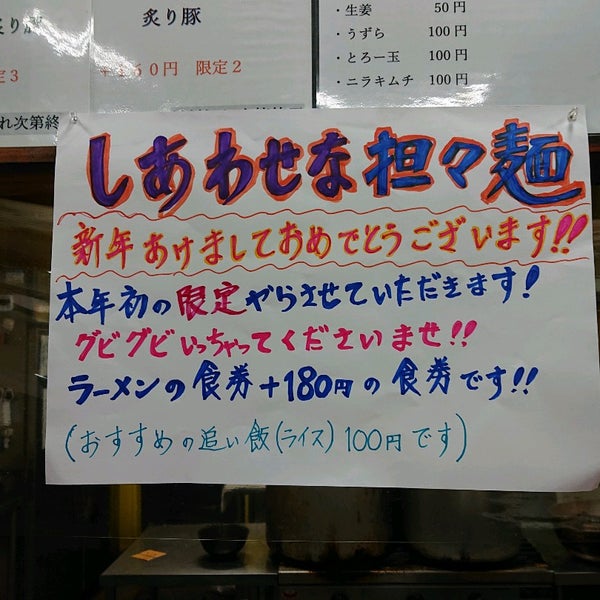 炙り豚
限定2
・生姜 50円
・うずら 100円
・とろー玉 100円
・ニラキムチ 100円
れ次第終
しあわせな担々麺
新年あけましておめでとうございます!!
本年初の限定やらさせていただきます!
グビグビいっちゃってくださいませ!!
ラーメンの食券+180円の食券です!!
(おすすめの追い飯(ライス)100円です)